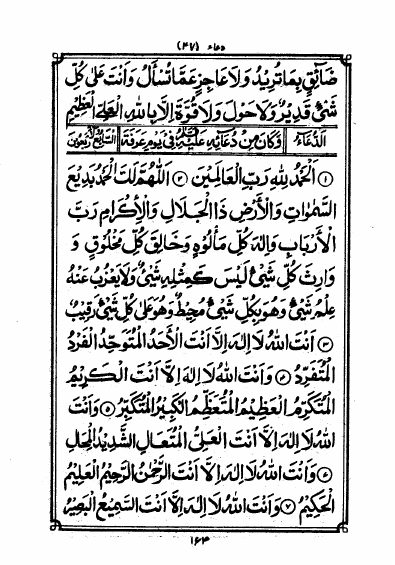 دعاء (۴۷)
ضَائِقٍ بِمَا تُرِيدُ وَلَا عَاجِزٍ عَمَّا تُسْأَلُ وَاَنْتَ عَلٰى كُلِّ
شَىْءٍ قَدِيْرٌ وَلَا حَوْلَ وَلَا قُوَّةَ اِلَّا بِاللهِ الْعَلِيِّ الْعَظِيْمِ
الدُّعَاءُ وَكَانَ مِنْ دُعَائِهِ عَلَيْهِ السَّلَامُ فِيْ يَوْمِ عَرَفَةَ السَّابِعُ وَالْاَرْبَعُوْنَ
①اَلْحَمْدُ لِلهِ رَبِّ الْعَالَمِيْنَ ② اَللّٰهُمَّ لَكَ الْحَمْدُ بَدِيْعَ
السَّمٰوَاتِ وَالْاَرْضِ ذَا الْجَلَالِ وَالْاِكْرَامِ رَبَّ
الْاَرْبَابِ وَاِلٰهَ كُلِّ مَأْلُوْهٍ وَخَالِقَ كُلِّ مَخْلُوْقٍ وَ
وَارِثَ كُلِّ شَىْءٍ لَيْسَ كَمِثْلِهِ شَىْءٌ وَلَا يَعْزُبُ عَنْهُ
عِلْمُ شَىْءٍ وَهُوَ بِكُلِّ شَىْءٍ مُحِيْطٌ وَهُوَ عَلٰى كُلِّ شَىْءٍ رَقِيْبٌ
③ اَنْتَ اللهُ لَا اِلٰهَ اِلَّا اَنْتَ الْاَحَدُ الْمُتَوَحِّدُ الْفَرْدُ
الْمُتَفَرِّدُ ④ وَاَنْتَ اللهُ لَا اِلٰهَ اِلَّا اَنْتَ الْكَرِيْمُ
الْمُتَكَرِّمُ الْعَظِيْمُ الْمُتَعَظِّمُ الْكَبِيْرُ الْمُتَكَبِّرُ ⑤ وَاَنْتَ
اللهُ لَا اِلٰهَ اِلَّا اَنْتَ الْعَلِيُّ الْمُتَعَالِ الشَّدِيْدُ الْمِحَالِ
⑥ وَاَنْتَ اللهُ لَا اِلٰهَ اِلَّا اَنْتَ الرَّحْمٰنُ الرَّحِيْمُ الْعَلِيْمُ
الْحَكِيْمُ ⑦ وَاَنْتَ اللهُ لَا اِلٰهَ اِلَّا اَنْتَ السَّمِيْعُ الْبَصِيْرُ
۱۶۳